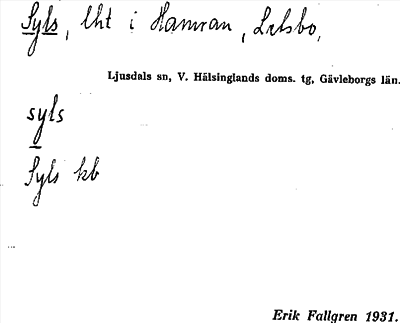 Syls, lht i Hamran, Letsbo,
Ljusdals sn, V. Hälsinglands doms. tg, Gävleborgs län.
syls
Syls kb
Erik Fallgren 1931.